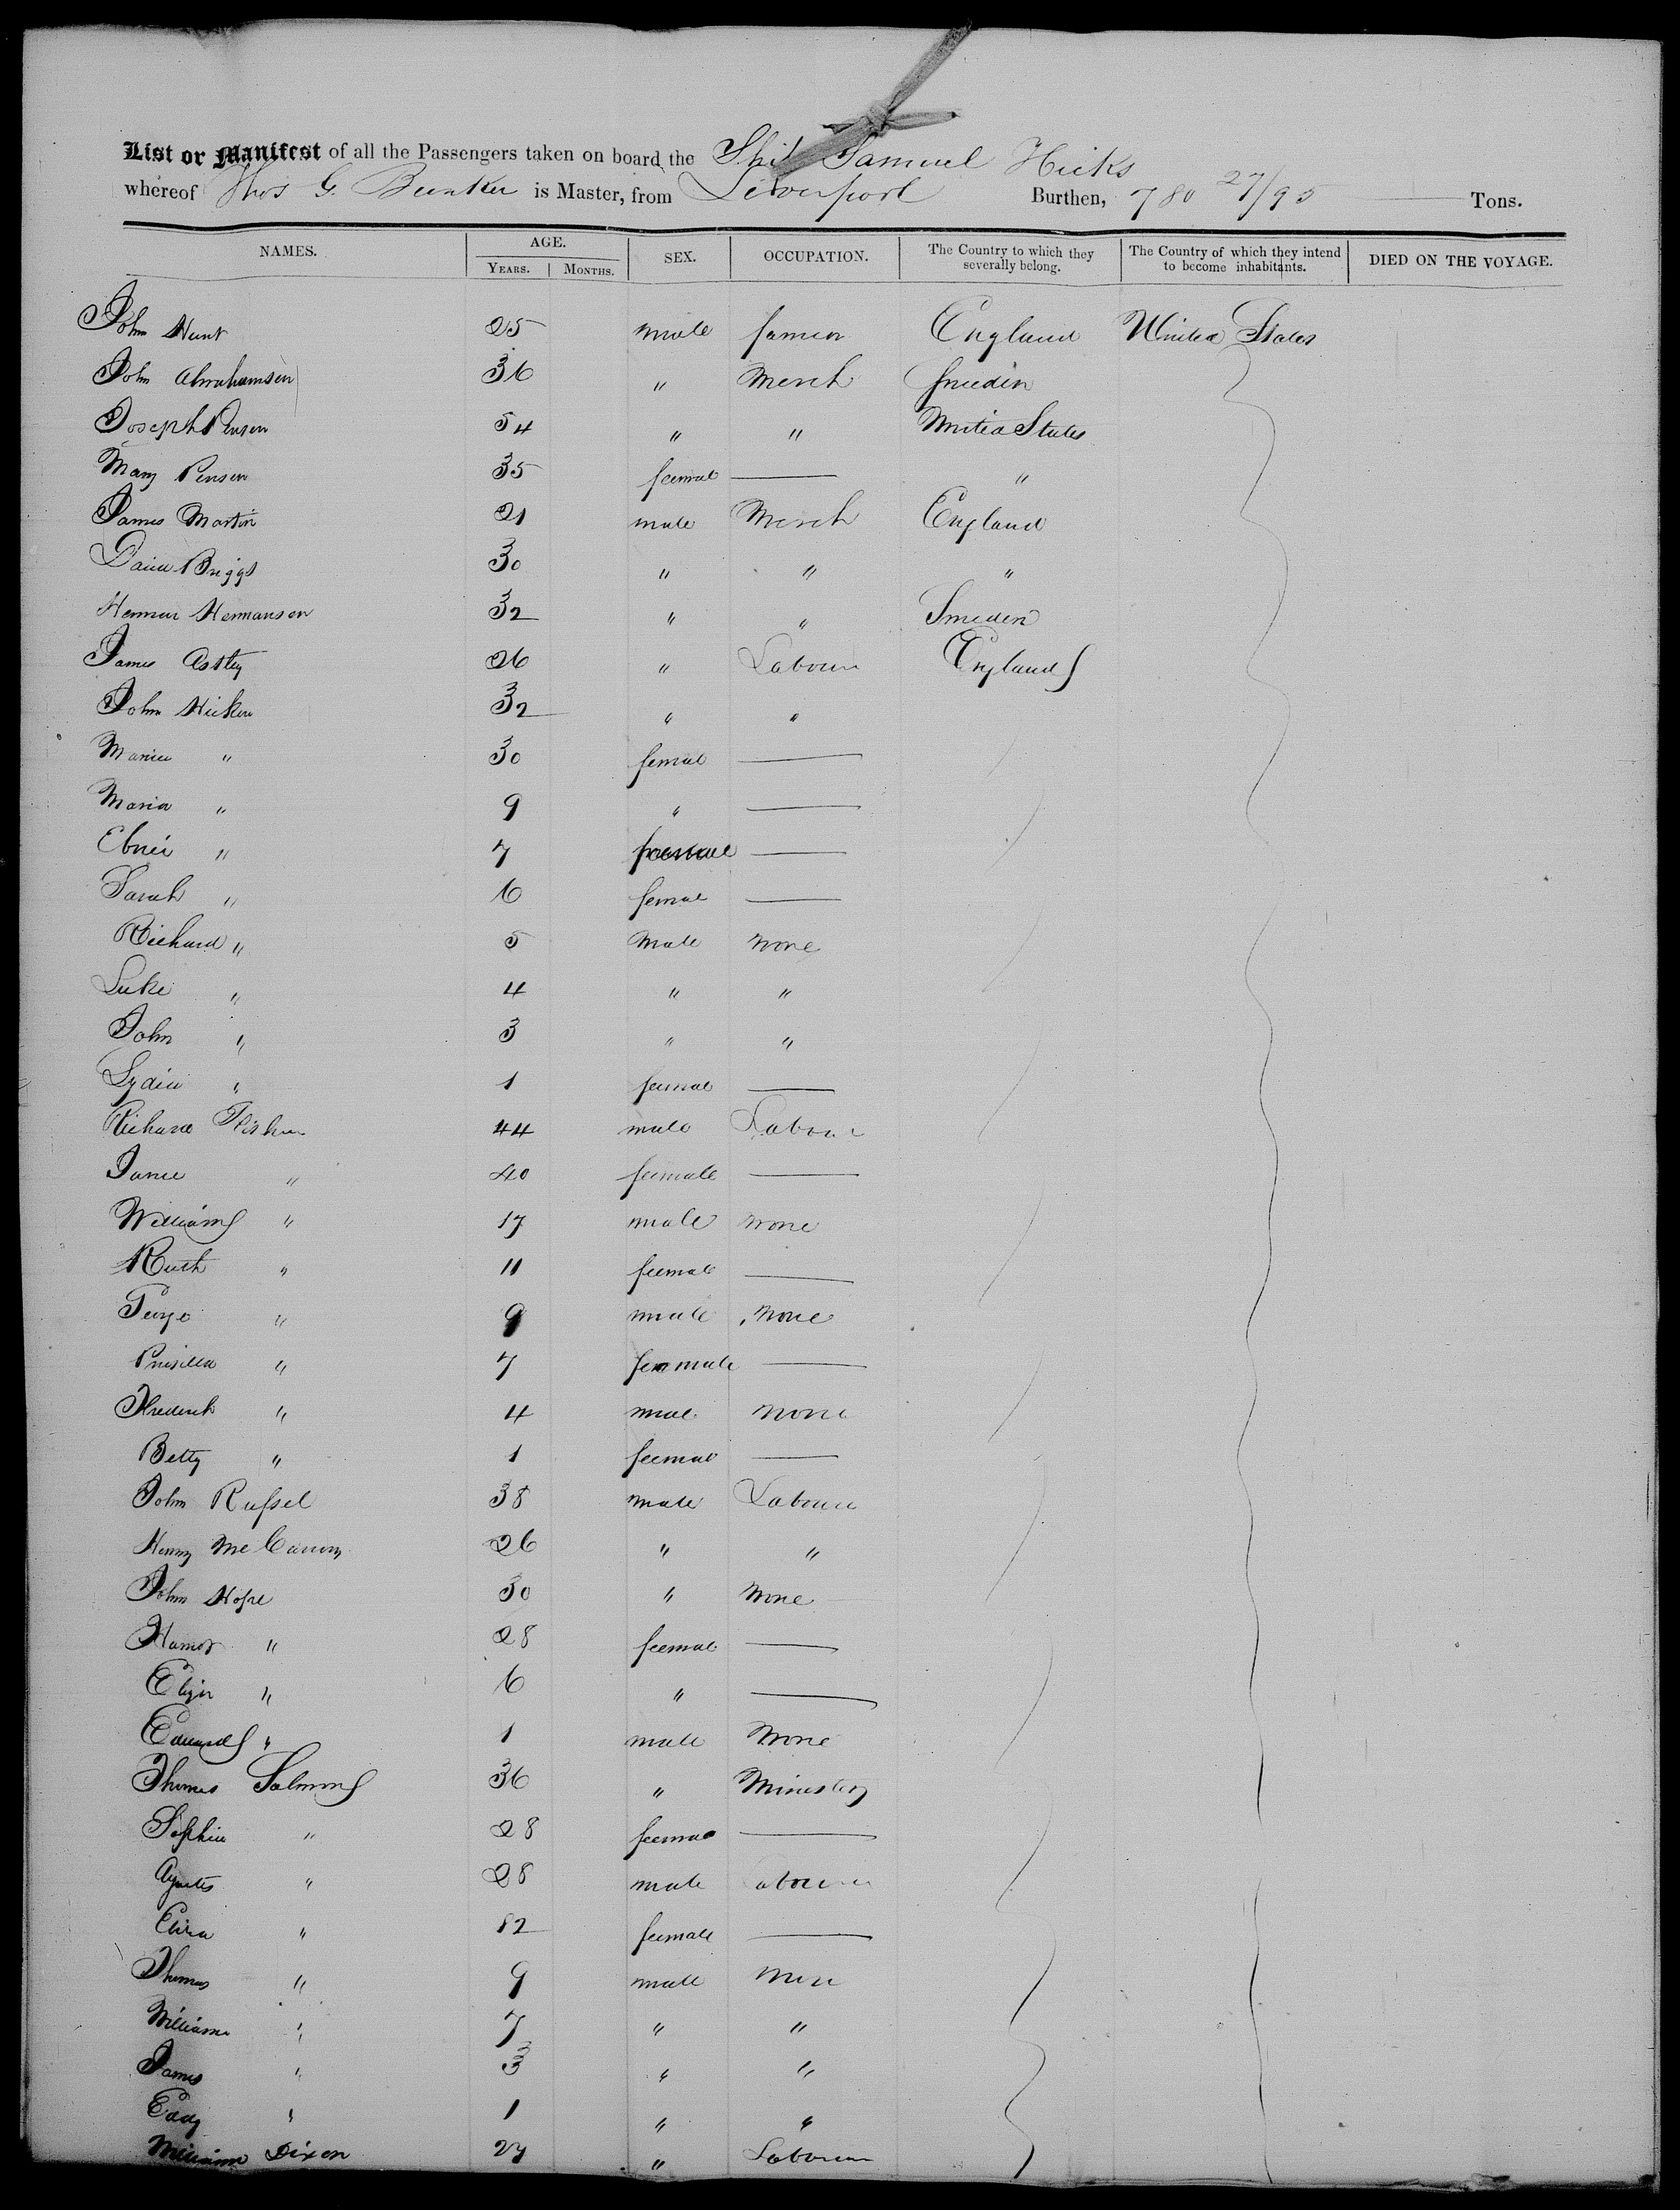 List or Manifest of all the Passengers taken on board the Ship Samuel Hicks
whereof Thos G. Bunker is Master, from Liverpool Burthen, 780 27/95 Tons.
NAMES. AGE. SEX. OCCUPATION. The Country to which they severally belong. The Country of which they intend to become inhabitants. DIED ON THE VOYAGE.
YEARS. MONTHS.
John Hunt 25 male farmer England United States
John Abrahamsen 36 " Merch Sweden
Joseph Penson 54 " " United States
Mary Penson 35 feemal "
James Martin 21 male Merch England
David Briggs 30 " " "
Herman Hermansen 32 " " Sweden
James Astley 26 " Labourer England
John Hicken 32 " "
Maria " 30 femal
Maria " 9 "
" 7
Sarah " 6 femal
Richard " 5 Male none
Luke " 4 " "
John " 3 " "
Lydia " 1 feemal
Richard Fisher 44 male Labour
Jane " 40 feemale
William " 17 male none
Ruth " 11 feemal
" 9 male none
Prisilla " 7 female
Frederick " 4 male none
Betty " 1 feemal
John Russel 38 male Labourer
Henry " "
John Hope 30 " None
" 28 feemal
Eliza " 6 "
Edward " 1 male None
Thomas 36 " Minister
Sophia " 28 feemal
" 28 male Labourer
Eliza " 12 feemale
Thomas " 9 male none
William " 7 " "
James " 3 " "
" 1 " "
William Dixon 27 " Labourer